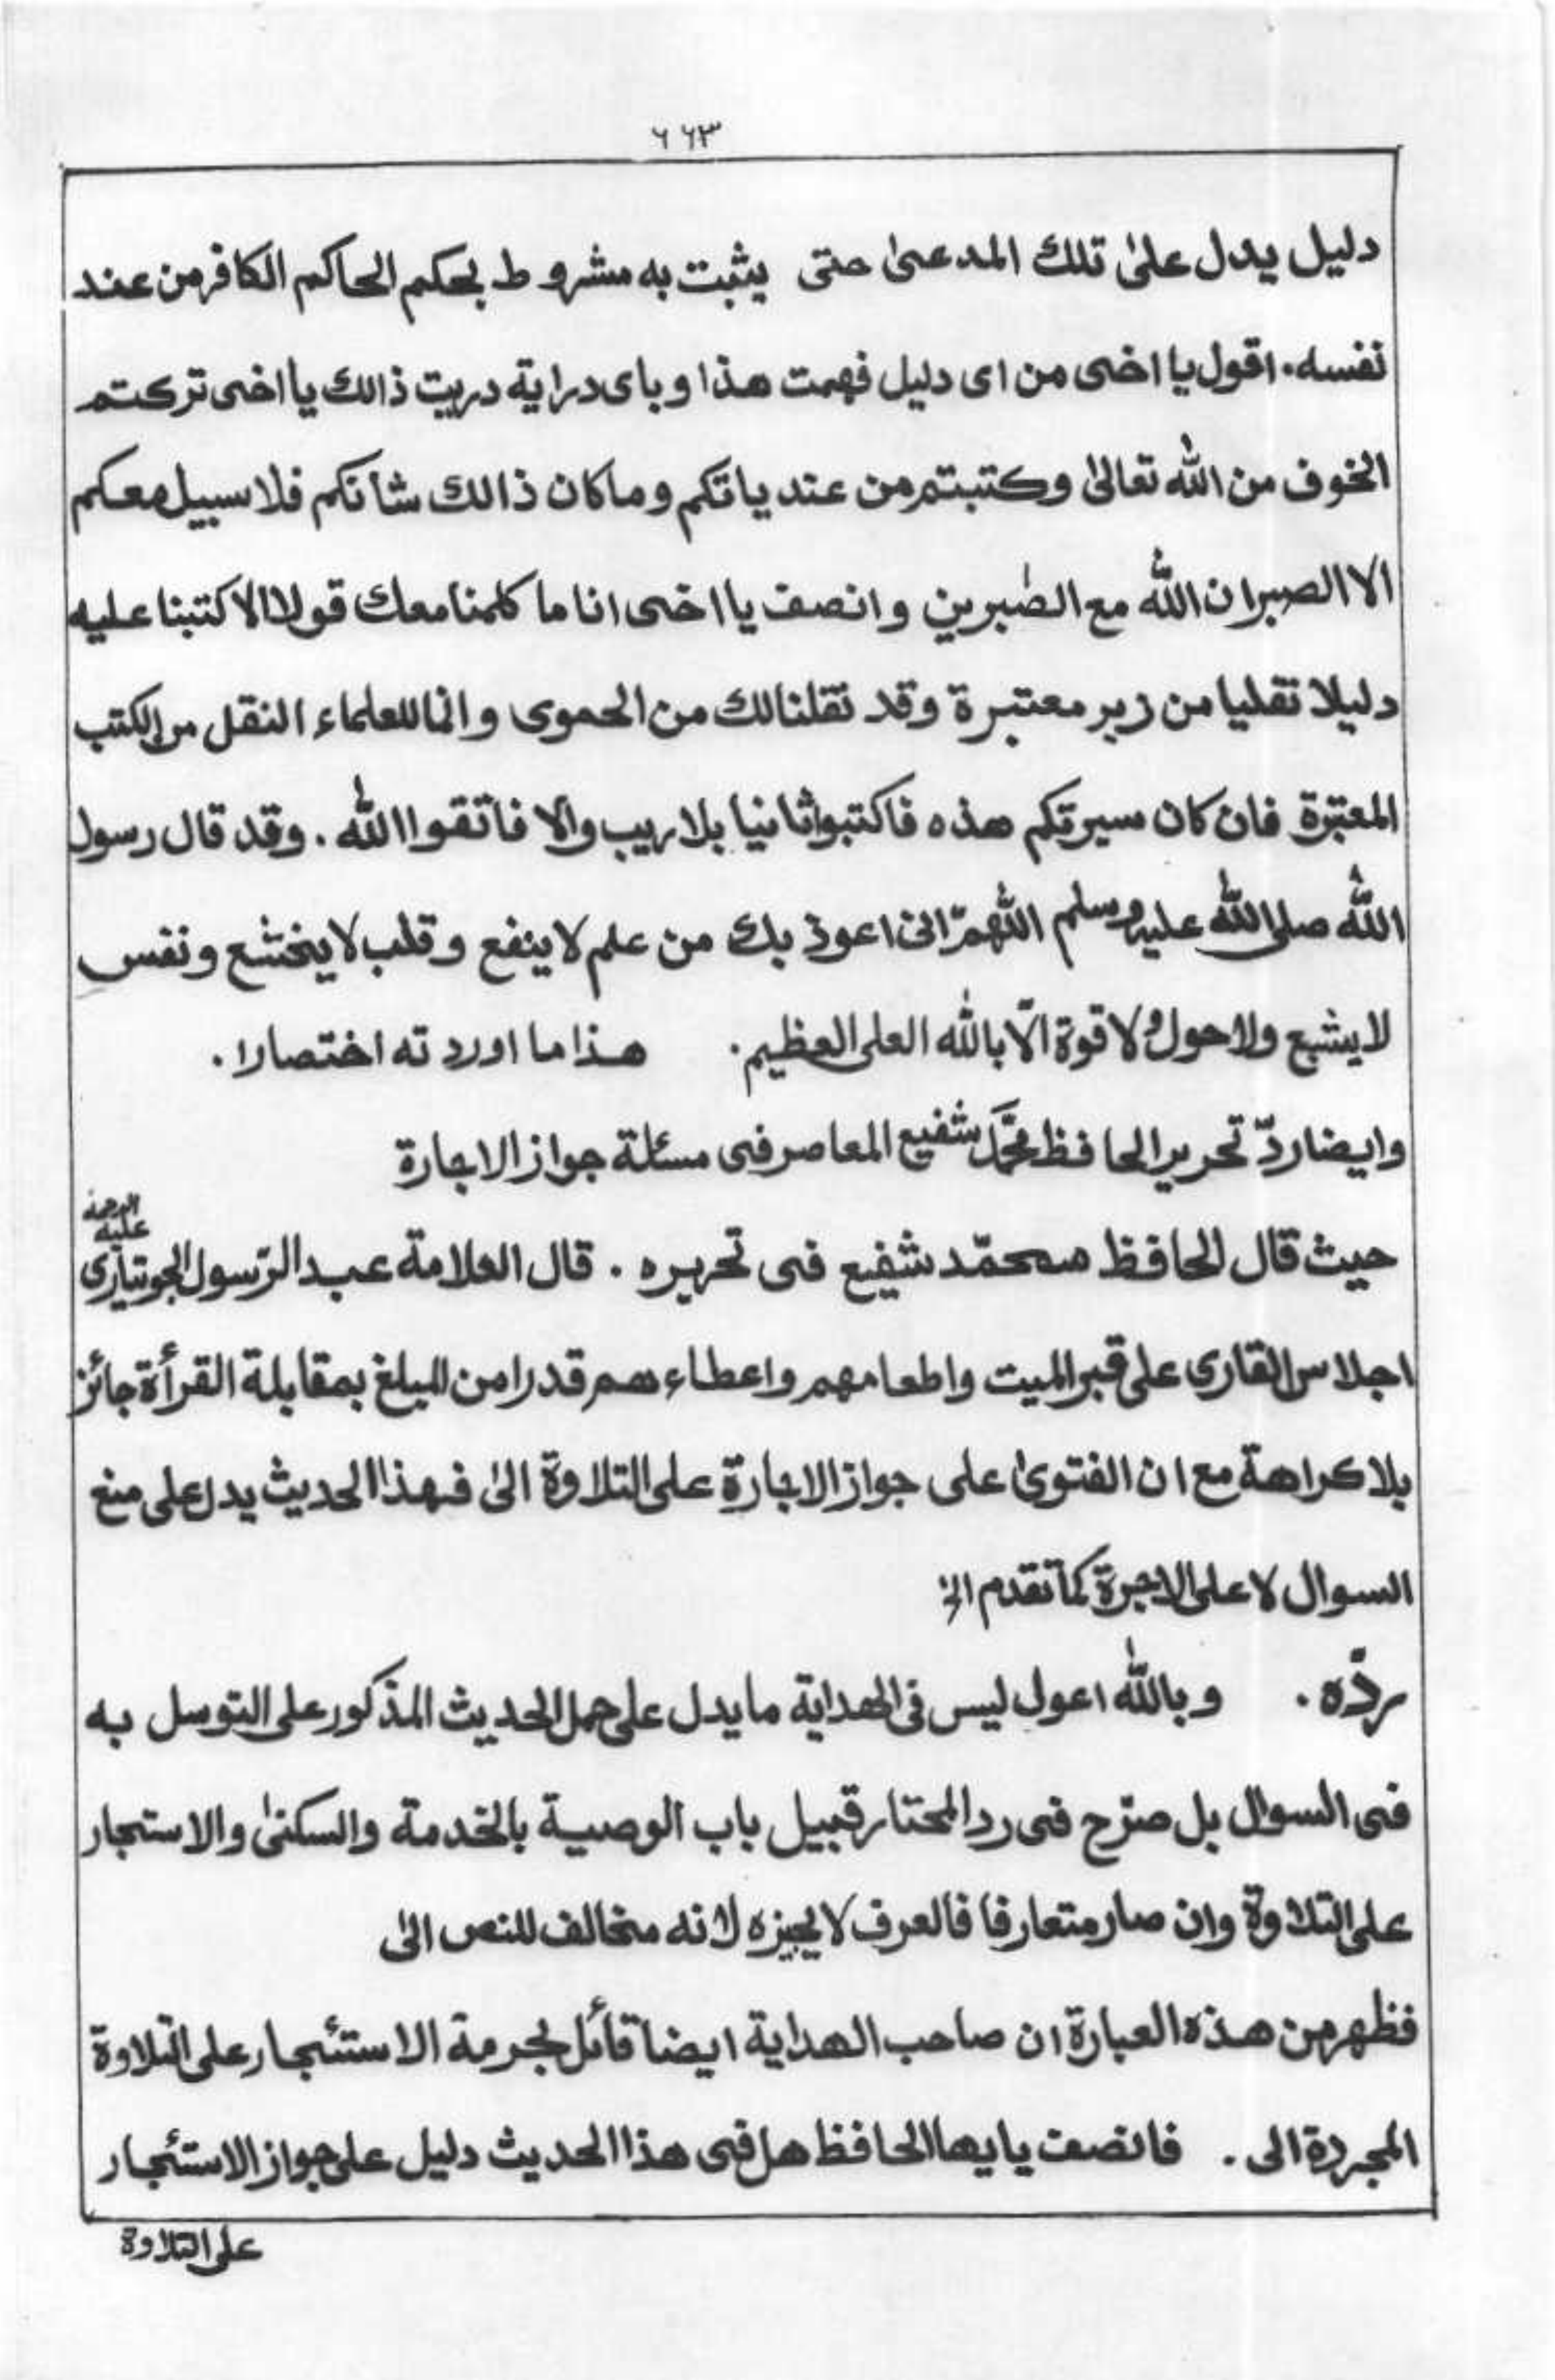 ٦٦٣
دليل يدل علىٰ تلك المدعىٰ حتى يثبت به مشروط بحكم الحاكم الكافر من عند
نفسه. اقول يا اخى من اى دليل فهمت هذا وباى دراية دريت ذالك يا اخى تركتم
الخوف من الله تعالىٰ وكتبتم من عندياتكم وما كان ذالك شأنكم فلا سبيل معكم
الا الصبر ان الله مع الصٰبرين وانصف يا اخى انا ما كلمنا معك قولا الا كتبنا عليه
دليلا نقليا من زبر معتبرة وقد نقلنا لك من الحموى وانما للعلماء النقل من الكتب
المعتبرة فان كان سيرتكم هذه فاكتبوا ثانيا بلا ريب والا فاتقوا الله. وقد قال رسول
الله صلى الله عليه وسلم اللهمّ انى اعوذ بك من علم لا ينفع وقلب لا يخشع ونفس
لا يشبع ولا حول ولا قوة الّا بالله العلى العظيم. هذا ما اوردته اختصارا.
وايضا ردّ تحرير الحافظ محمَّد شفيع المعاصر فى مسئلة جواز الاجارة
حيث قال الحافظ محمّد شفيع فى تحريره. قال العلامة عبد الرّسول عليه الرحمة
اجلاس القارى على قبر الميت واطعامهم واعطاءهم قدرا من المبلغ بمقابلة القرأة جائز
بلا كراهة مع ان الفتوىٰ على جواز الاجارة على التلاوة الىٰ فهذا الحديث يدل على منع
السوال لا على الاجرة كما تقدم الخ
ردّه. وبالله اعول ليس فى الهداية ما يدل على حمل الحديث المذكور على التوسل به
فى السوال بل صرّح فى رد المحتار قبيل باب الوصية بالخدمة والسكنىٰ والاستجار
على التلاوة وان صار متعارفا فالعرف لا يجيزه لانه مخالف للنص الىٰ
فظهر من هذه العبارة ان صاحب الهداية ايضا قائل بحرمة الاستئجار على التلاوة
المجردة الى. فانصف يايها الحافظ هل فى هذا الحديث دليل على جواز الاستئجار
على التلاوة